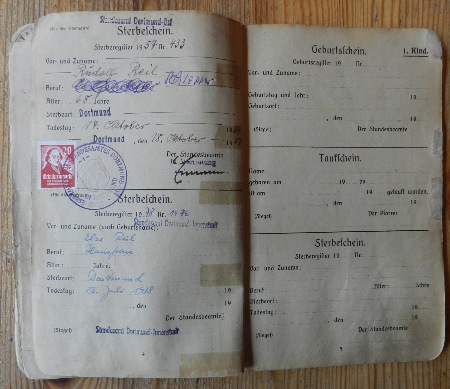 Standesamt Dortmund-Ost
Sterbeschein.
Sterberegister 1957 Nr. 433
Vor- und Zuname:
Rudolf Reil
Beruf:
Alter: 68 Jahre
Sterbeort Dortmund
Todestag: 14. Oktober 19
Dortmund, den 18. Oktober 19
Der Standesbeamte
20
Sterbeschein.
Sterberegister 19 Nr. 1496
Standesamt Dortmund-Innenstadt
Vor- und Zuname (auch Geburtsname):
Else Reil
Beruf: Hausfrau
Alter: Jahre
Sterbeort: Dortmund
Todestag: Juli 1978 19
, den 19
Der Standesbeamte:
(Siegel) Standesamt Dortmund-Innenstadt
4
Geburtschein. 1. Kind.
Geburtsregister 19 Nr.
Vor- und Zuname:
Geburtstag und Jahr: 19
Geburtsort:
, den 19
(Siegel) Der Standesbeamte
Taufschein.
Name
geboren am 19
ist am 19 getauft worden.
, den 19
(Siegel) Der Pfarrer
Sterbeschein.
Sterberegister 19 Nr.
Vor- und Zuname:
Alter: Jahre
Sterbeort:
Todestag: 19
, den 19
Der Standesbeamte:
(Siegel)
5